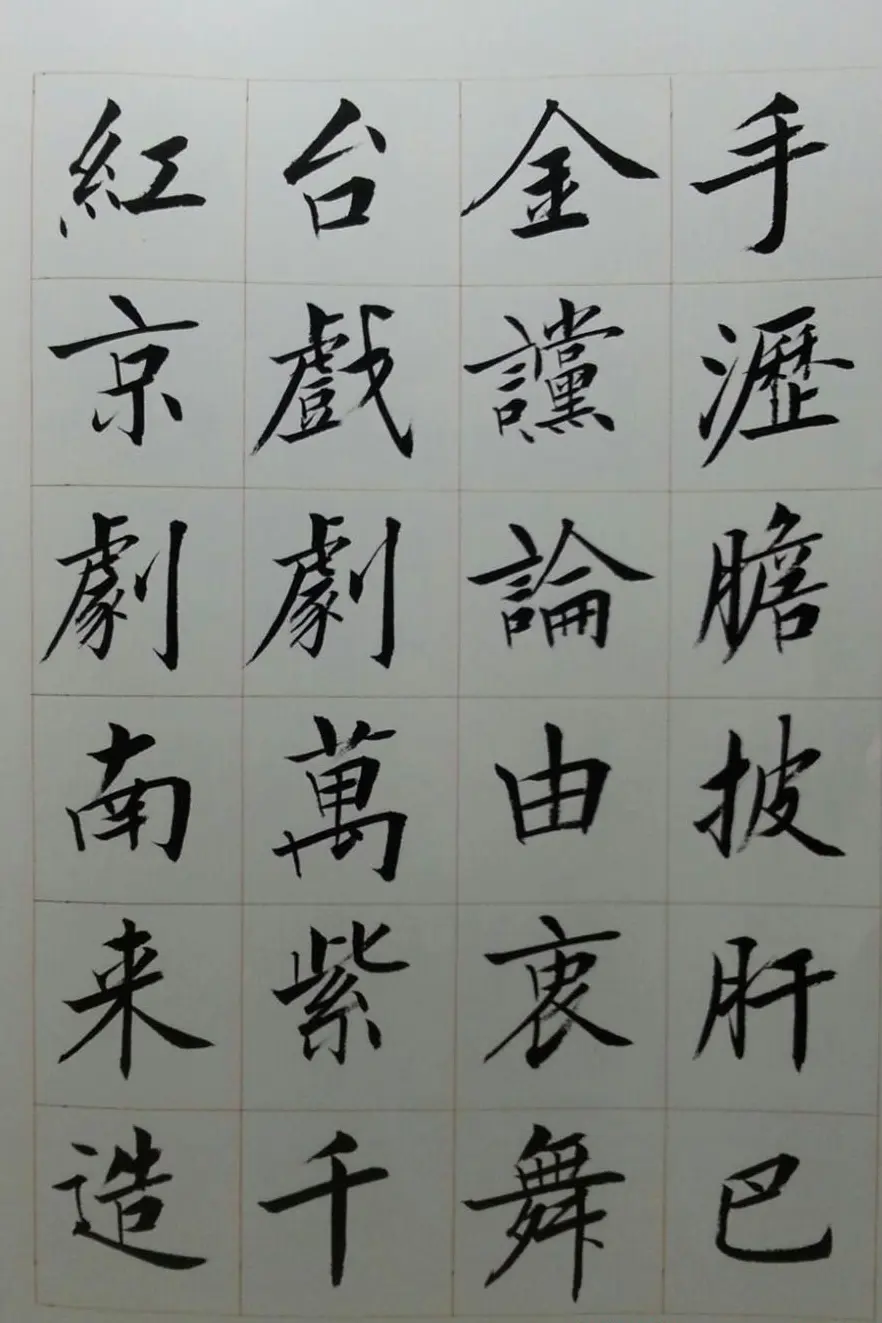 手瀝膽披肝巴
金讜論由衷舞
台戲劇萬紫千
紅京劇南来造